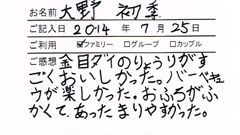 お名前 大野 初季
ご記入日 2014 年 7 月 25日
ご利用 ☑ファミリー □グループ □カップル
ご感想 金目ダイのりょうりがす
ごくおいしかった。バーベキュ
ウが楽しかった。おふろがふ
かくて、あったまりやすかった。